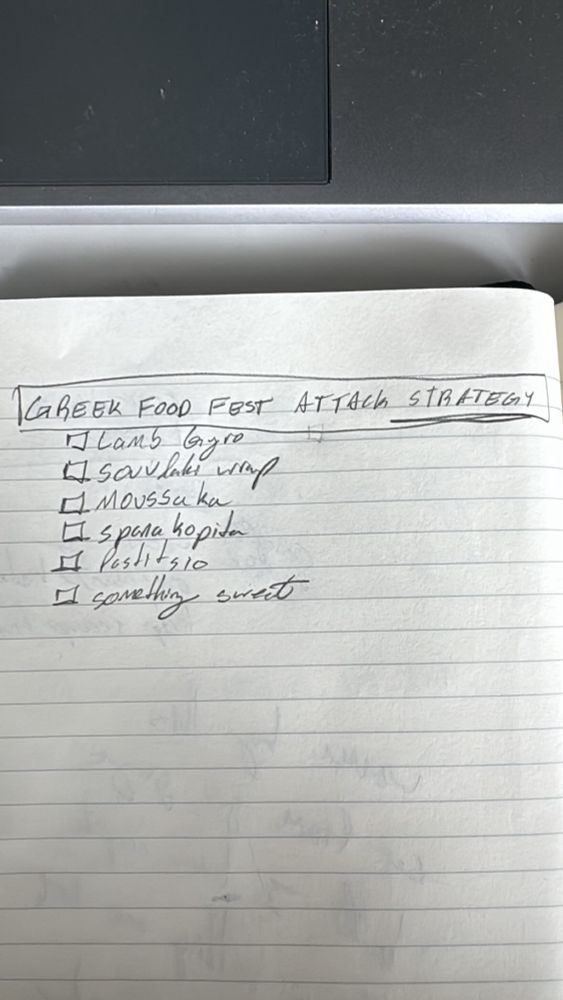 GREEK FOOD FEST ATTACK STRATEGY
Lamb Gyro
Souvlaki wrap
Moussaka
spanakopita
Pastitsio
something sweet